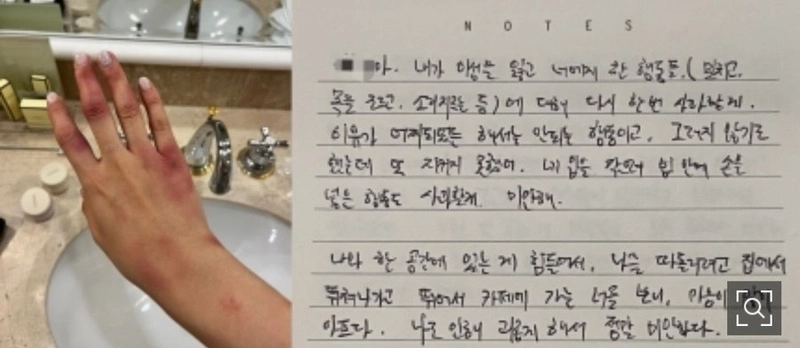 NOTES
아. 내가 이성을 잃고 너에게 한 행동들, (밀치고,
목을 조르고, 소리지르는 등) 에 대해 다시 한번 사과할게.
이유가 어찌되었든 해서는 안되는 행동이고, 그러지 않기로
했는데 또 지키지 못했어. 네 입을 막으려 입 안에 손을
넣은 행동도 사과할게. 미안해.
나와 한 공간에 있는 게 힘들어서, 낯을 따돌리려고 집에서
뛰쳐나가고 뛰어서 카페에 가는 너를 보니, 마음이
아프다. 나로 인해 괴롭지 해서 정말 미안하다.